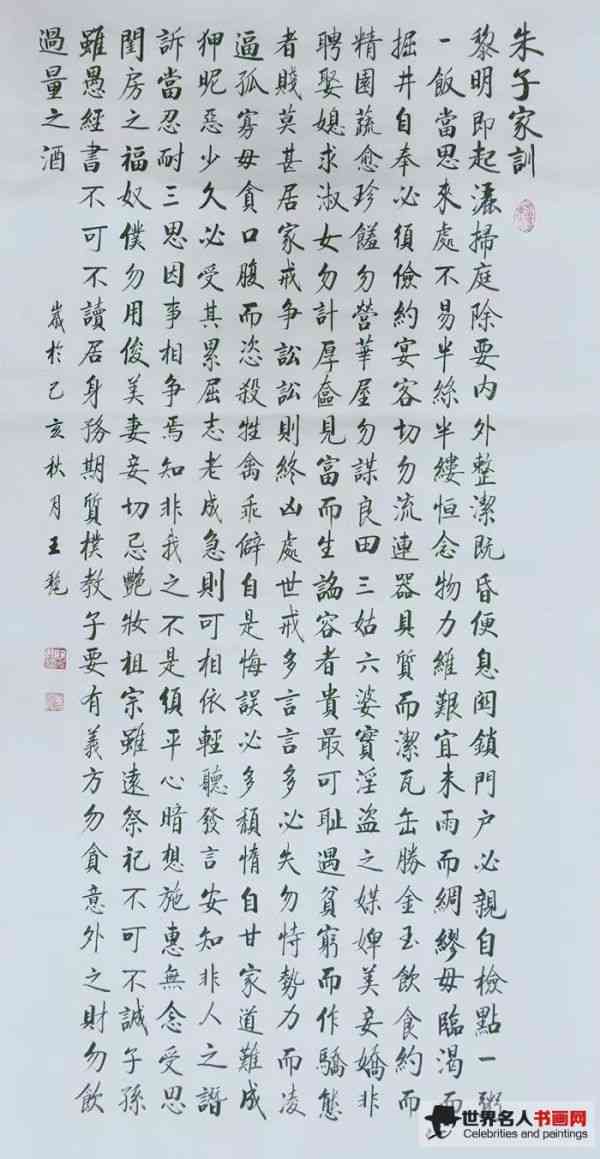 朱子家訓
黎明即起灑掃庭除要内外整潔既昏便息関鎖門户必親自檢點一粥
一飯當思來處不易半絲半縷恒念物力維艱宜未雨而綢繆毋臨渴而
掘井自奉必須儉約宴客切勿流連器具質而潔瓦缶勝金玉飲食約而
精園蔬愈珍饈勿營華屋勿謀良田三姑六婆實淫盗之媒婢美妾嬌非
聘娶媳求淑女勿計厚奩見富而生諂容者貴最可耻遇貧窮而作驕態
者賤莫甚居家戒争訟訟則終凶處世戒多言言多必失勿恃勢力而凌
逼孤寡毋貪口腹而恣殺牲禽乖僻自是悔誤必多頹惰自甘家道難成
狎昵惡少久必受其累屈志老成急則可相依輕聽發言安知非人之譖
訴當忍耐三思因事相争焉知非我之不是須平心暗想施惠無念受恩
閨房之福奴僕勿用俊美妻妾切忌艷妝祖宗雖遠祭祀不可不誠子孫
雖愚經書不可不讀居身務期質樸教子要有義方勿貪意外之財勿飲
過量之酒
歲於己亥秋月王
世界名人书画网
Celebrities and paintings